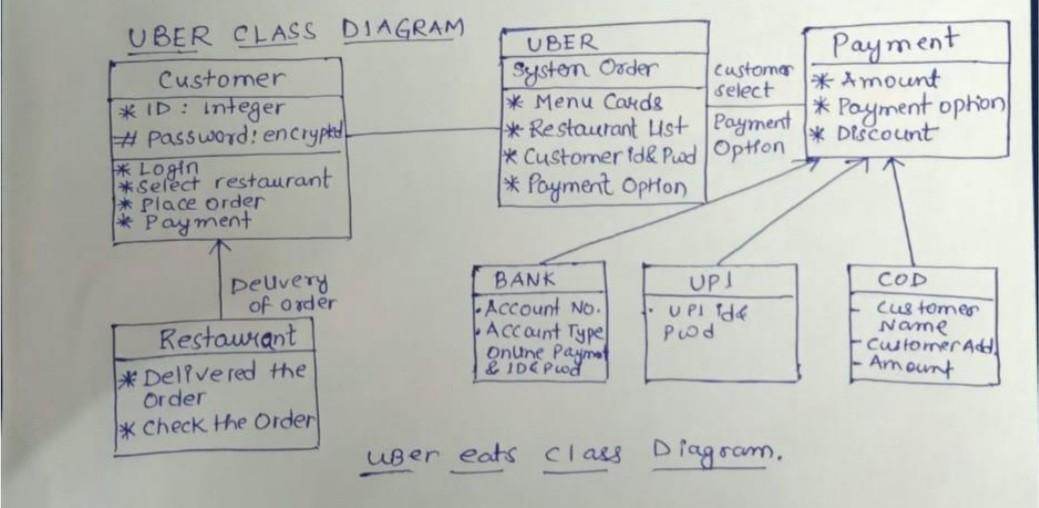 UBER CLASS DIAGRAM
Customer
* ID : Integer
# Password: encryptd
* Login
* Select restaurant
* Place order
* Payment
UBER
System Order
* Menu Cards
* Restaurant List
* Customer id & Pwd
* Payment Option
customer
select
Payment
Option
Payment
* Amount
* Payment option
* Discount
Delivery
of order
Restaurant
* Delivered the
Order
* Check the Order
BANK
• Account No.
• Account Type
Online Paymet
& ID & Pwd
UPI
• UPI id &
Pwd
COD
- Customer
Name
- Customer Add.
- Amount
UBer eats Class Diagram.